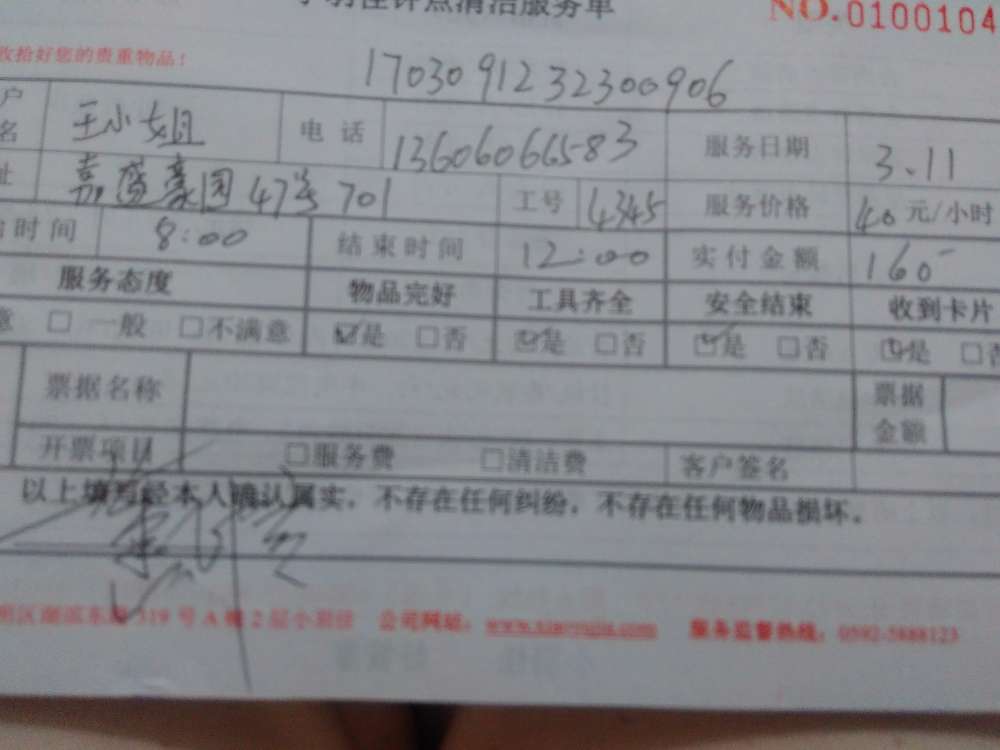 点清洁服务单 NO.0100104
收拾好您的贵重物品！
1703091232300906
户名 王小姐 电话 13606066583 服务日期 3.11
址 嘉盛豪园47号701 工号 4345 服务价格 40元/小时
时间 8:00 结束时间 12:00 实付金额 160
服务态度 物品完好 工具齐全 安全结束 收到卡片
意 □一般 □不满意 ☑是 □否 ☑是 □否 ☑是 □否 ☑是 □否
票据名称 票据金额
开票项目 □服务费 □清洁费 客户签名
以上填写经本人确认属实，不存在任何纠纷，不存在任何物品损坏。
319号A幢2层小羽佳 公司网址：www.xiaoyujia.com 服务监督热线：0592-5888123